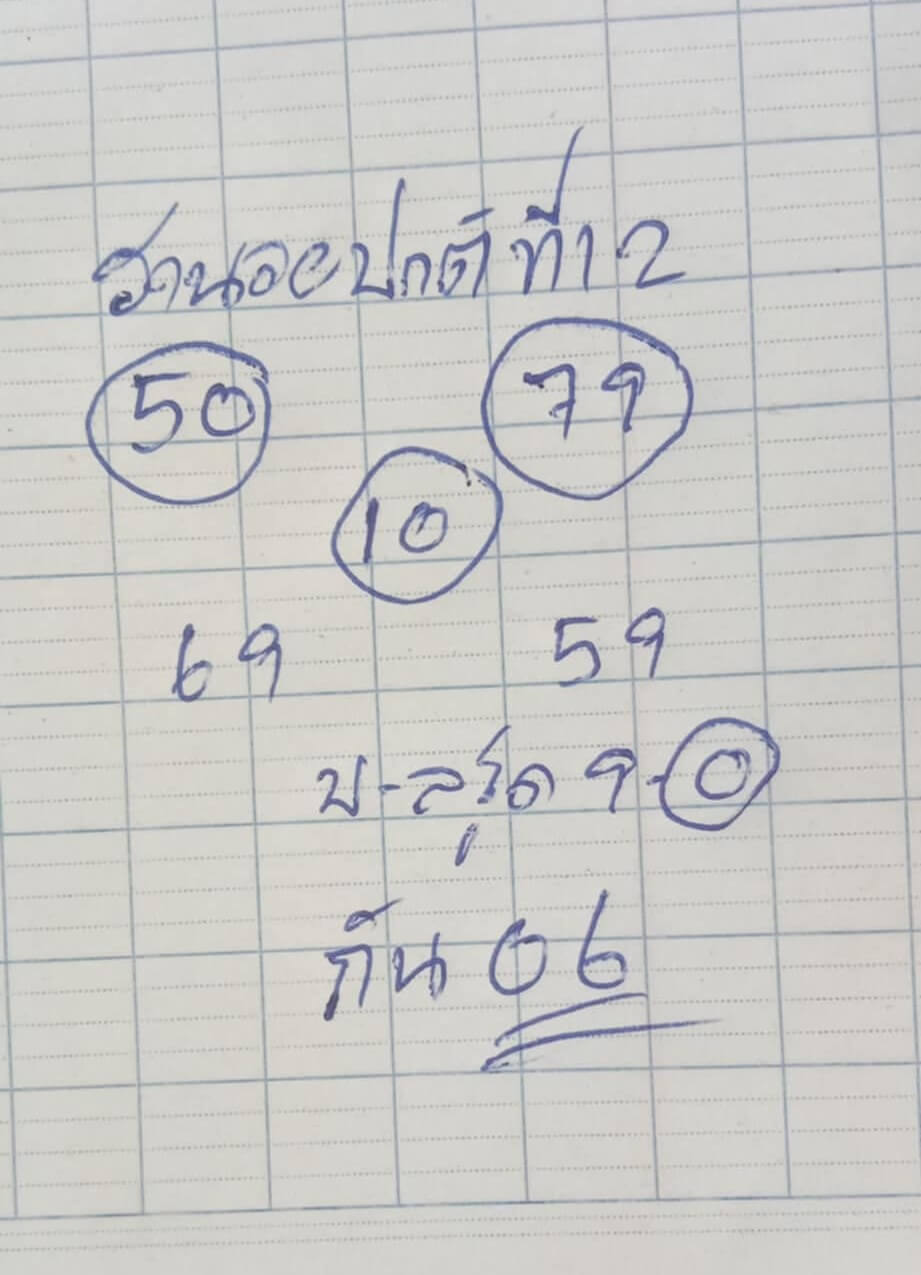 ฮานอยปกติ ที่12
50 79
10
69 59
บ-ล รูด 9-0
กัน 06